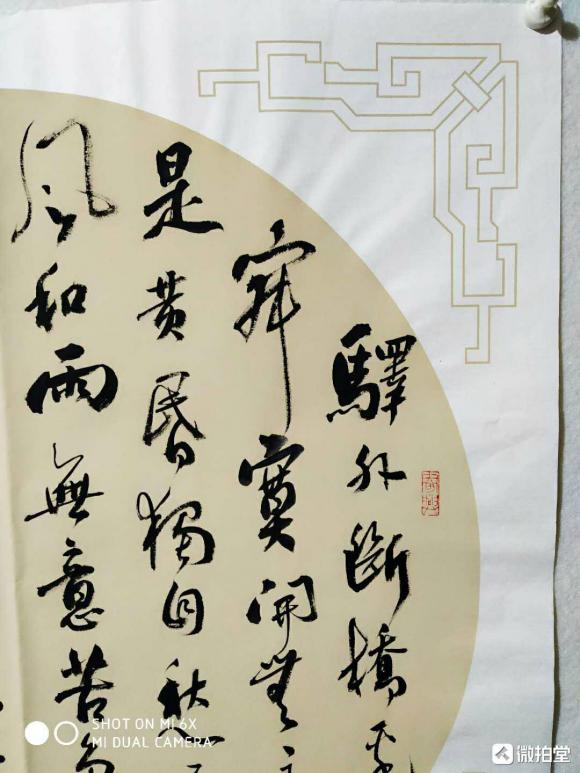 驛外斷橋
寂寞開無主
是黃昏獨自愁
風和雨無意苦
SHOT ON MI 6X
MI DUAL CAMERA
微拍堂